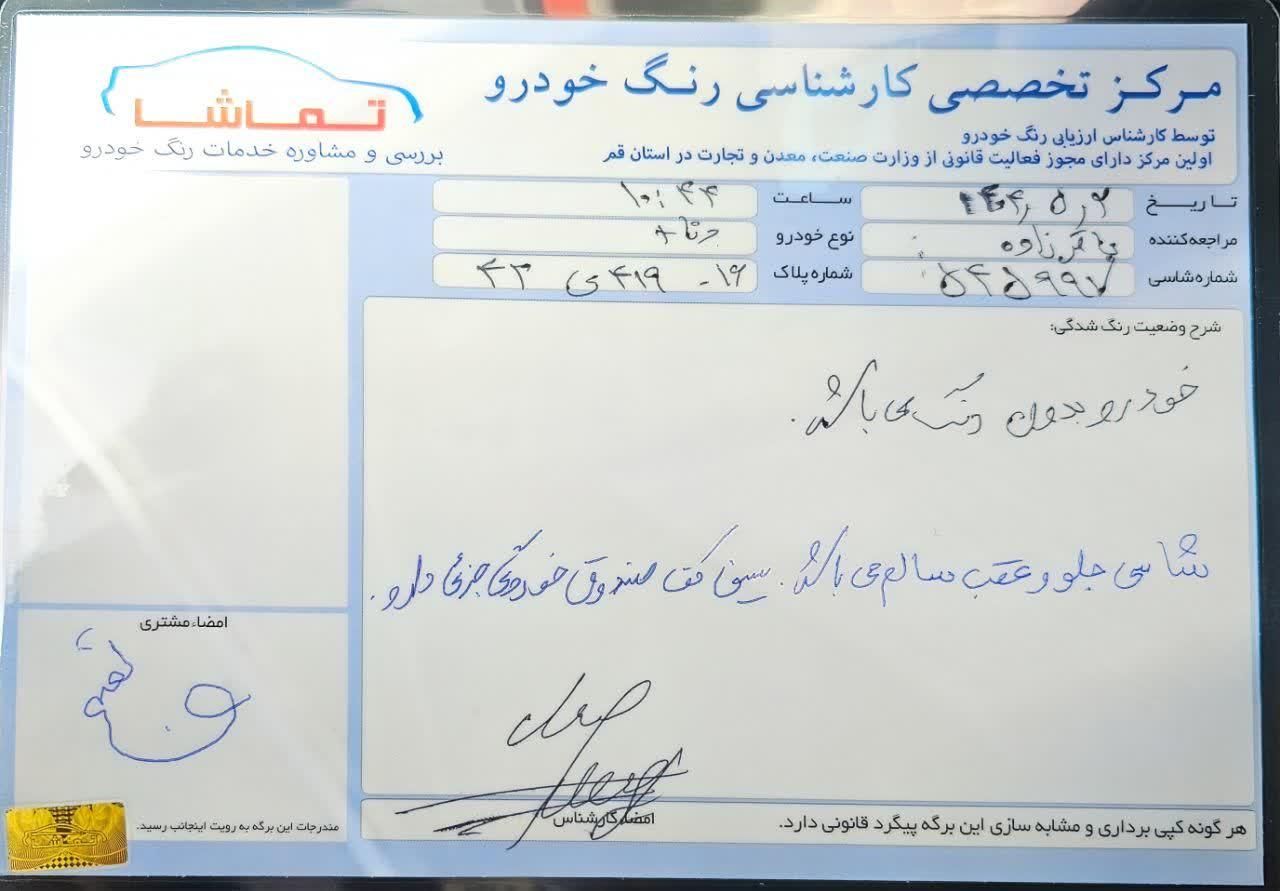 مرکز تخصصی کارشناسی رنگ خودرو
تماشا
توسط کارشناس ارزیابی رنگ خودرو
بررسی و مشاوره خدمات رنگ خودرو
اولین مرکز دارای مجوز فعالیت قانونی از وزارت صنعت، معدن و تجارت در استان قم
تاریخ ۱۴۰۴٫۵٫۲ ساعت ۱۰:۴۴
مراجعه‌کننده باقرزاده نوع خودرو دنا+
شماره شاسی ۵۴۵۹۹۷ شماره پلاک ۱۶- ۴۱۹ی ۴۳
شرح وضعیت رنگ شدگی:
خودرو بدون رنگ می باشد.
شاسی جلو و عقب سالم می باشد. سینی کف صندوق خوردگی جزئی دارد.
امضاء مشتری
امضا کارشناس
مندرجات این برگه به رویت اینجانب رسید.
هر گونه کپی برداری و مشابه سازی این برگه پیگرد قانونی دارد.
تماشا